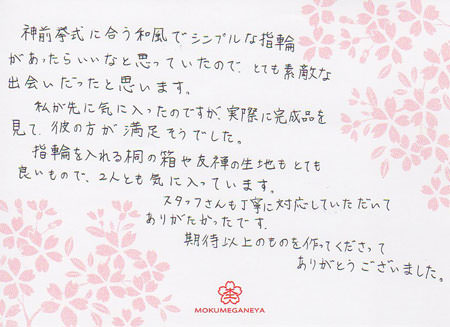 神前挙式に合う和風でシンプルな指輪
があったらいいなと思っていたので、とても素敵な
出会いだったと思います。
私が先に気に入ったのですが、実際に完成品を
見て、彼の方が満足そうでした。
指輪を入れる桐の箱や友禅の生地もとても
良いもので、2人とも気に入っています。
スタッフさんも丁寧に対応していただいて
ありがたかったです。
期待以上のものを作ってくださって
ありがとうございました。
MOKUMEGANEYA